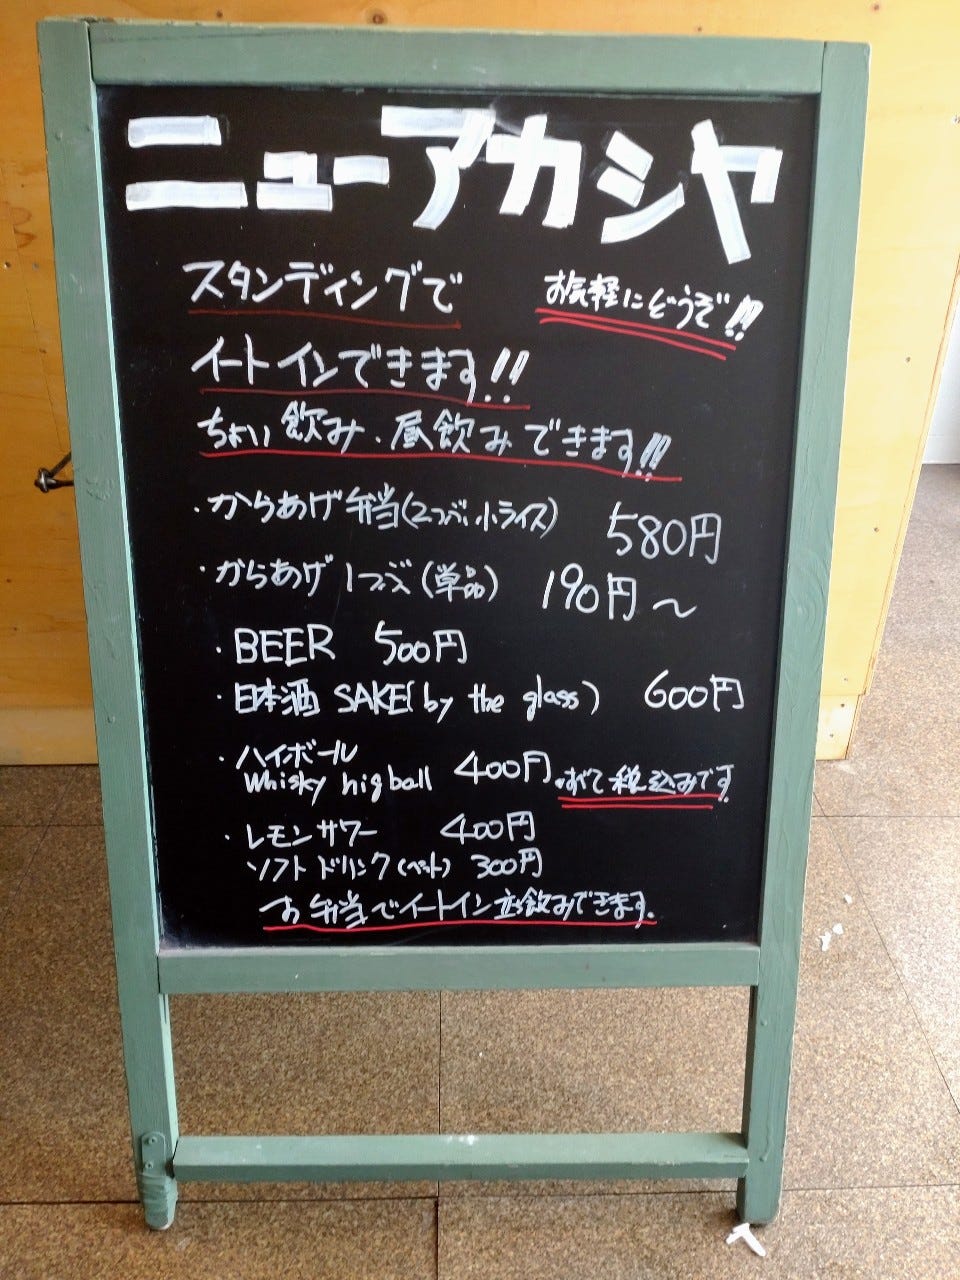 ニューアカシヤ
スタンディングで
お気軽にどうぞ!!
イートインできます!!
ちょい飲み、昼飲みできます!!
・からあげ弁当(2つぶ 小ライス) 580円
・からあげ 1つぶ(単品) 190円〜
・BEER 500円
・日本酒 SAKE(by the glass) 600円
・ハイボール
Whisky higball 400円
すべて税込みです
・レモンサワー 400円
ソフトドリンク(ペット) 300円
お弁当でイートイン立飲みできます。